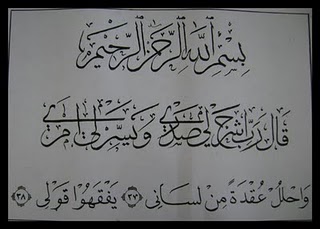 بِسْمِ اللَّهِ الرَّحْمَٰنِ الرَّحِيمِ
قَالَ رَبِّ اشْرَحْ لِي صَدْرِي وَيَسِّرْ لِي أَمْرِي
وَاحْلُلْ عُقْدَةً مِنْ لِسَانِي ﴿٢٧﴾ يَفْقَهُوا قَوْلِي ﴿٢٨﴾